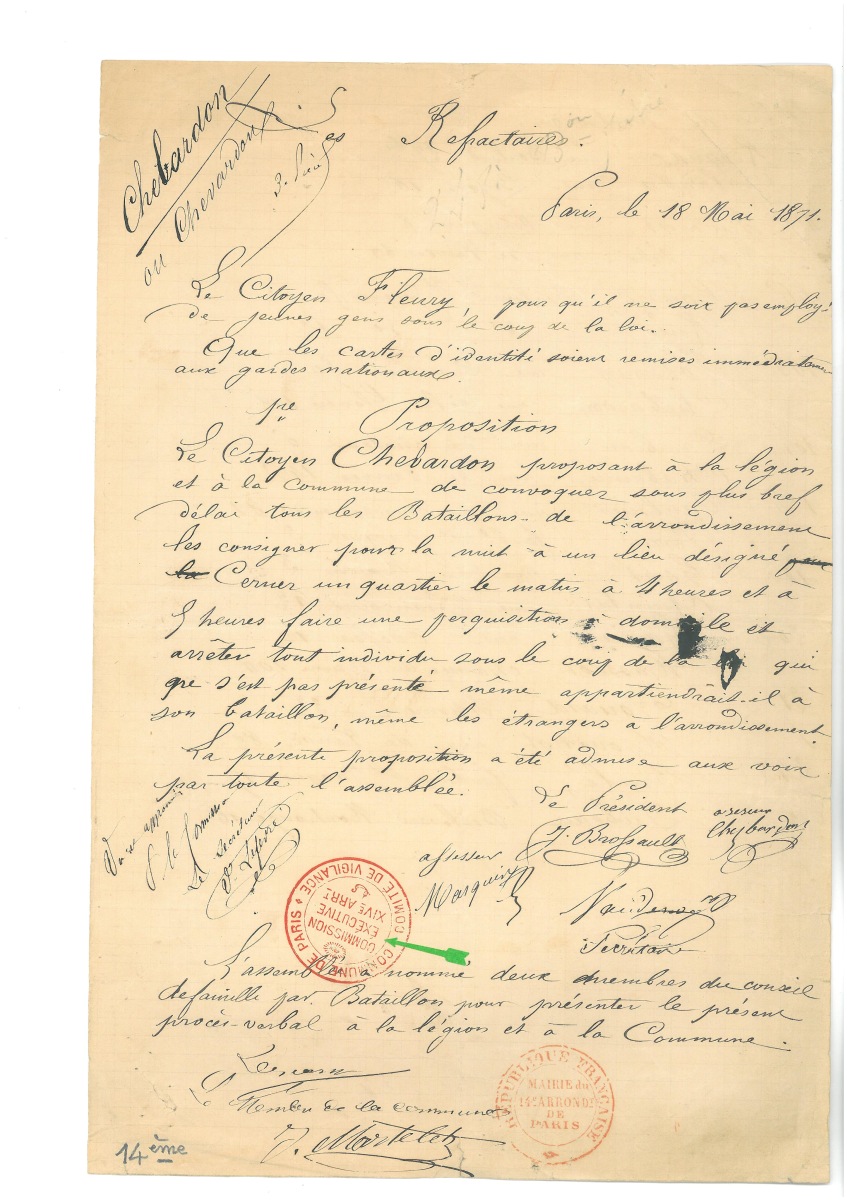 Chebardon
ou Chevardon
3. 
Refractaires.
Paris, le 18 Mai 1871.
Le Citoyen Fleury, pour qu'il ne soit pas employé
de jeunes gens sous le coup de la loi.
Que les cartes d'identité soient remises immédiatement
aux gardes nationaux.
1re Proposition
Le Citoyen Chebardon proposant à la légion
et à la Commune de convoquer sous plus bref
délai tous les Bataillons de l'arrondissement
les consigner pour la nuit à un lieu désigné
Cerner un quartier le matin à 4 heures et à
5 heures faire une perquisition à domicile et
arrêter tout individu sous le coup de la loi qui
ne s'est pas présenté même appartiendrait-il à
son bataillon, même les étrangers à l'arrondissement.
La présente proposition a été admise aux voix
par toute l'assemblée.
Le Président
J. Brossault
assesseur
Chebardon
assesseur
Marquis
Secrétaire
Vu et approuvé
P. la Commission
Le Secrétaire
Lefèvre
COMMUNE DE PARIS
COMITÉ DE VIGILANCE
COMMISSION
EXÉCUTIVE
XIVE ARRT
L'assemblée a nommé deux membres du conseil
de famille par Bataillon pour présenter le présent
procès-verbal à la légion et à la Commune.
Le Membre de la commune
J. Martelet
RÉPUBLIQUE FRANÇAISE
MAIRIE du
14e ARRONDT
DE
PARIS
14ème